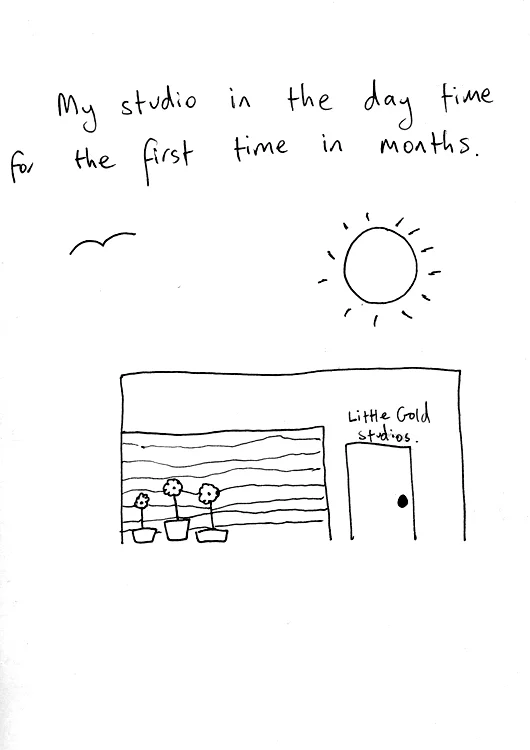 My studio in the day time
for the first time in months.
Little Gold
studios.